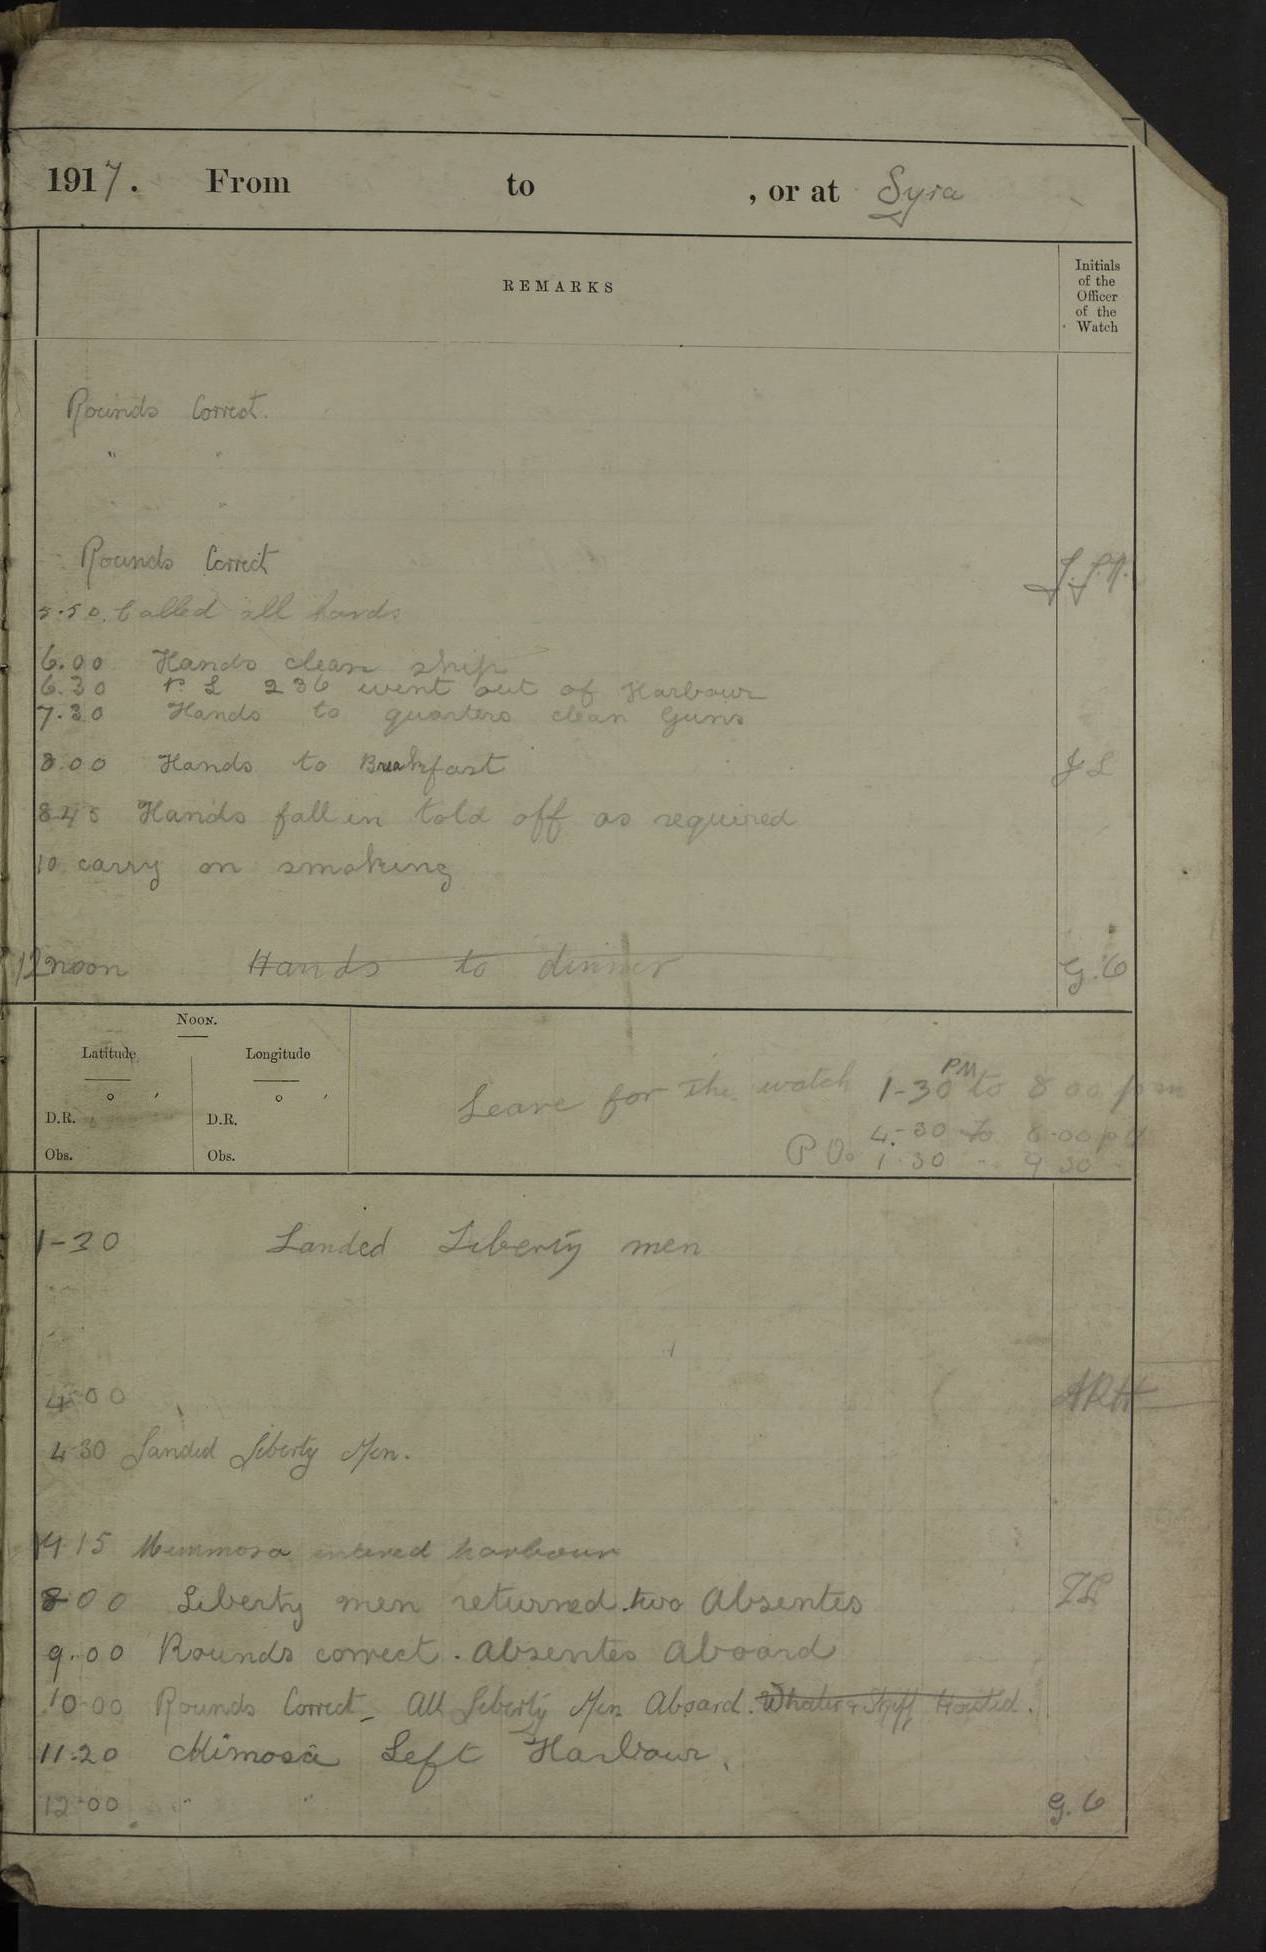 1917. From to , or at Syra
REMARKS
Initials of the Officer of the Watch
Rounds Correct.
" "
" "
Rounds Correct
5.50. Called all hands
6.00 Hands clean ship
6.30 L 236 went out of Harbour
7.30 Hands to quarters clean Guns
8.00 Hands to Breakfast J L
8.45 Hands fall in told off as required
10. carry on smoking
12 noon Hands to dinner G. G
Noon.
Latitude Longitude
° ′ ° ′
D.R. D.R.
Obs. Obs.
Leave for The watch 1-30 PM to 8 00 pm
4.-30 to 8-00 pm
P Os 1.30 " 9 30 "
1-30 Landed Liberty men
4-00 ARH
4-30 Landed Liberty Men.
4.15 Memmosa entered harbour
8 00 Liberty men returned. two Absentes
9.00 Rounds correct. Absentes Aboard
10-00 Rounds Correct_ All Liberty Men Aboard. Whaler & Skiff Hoisted.
11-20 Mimosa Left Harbour.
12-00 " " G. G